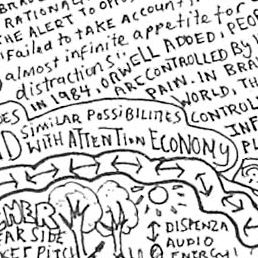 RATIONAL
THE ALERT TO OPPO
Failed to TAKE ACCOUNT
almost infinite appetite for
distractions". 
IN 1984, ORWELL ADDED, PEOPL
ARE CONTROLLED BY
PAIN. IN BRA
WORLD, TH
CONTROL
INF
PL
SIMILAR POSSIBILITIES
WITH ATTENTION ECONONY
FAR SIDE
KET PITCH
DISPENZA
AUDIO
ENERGY!